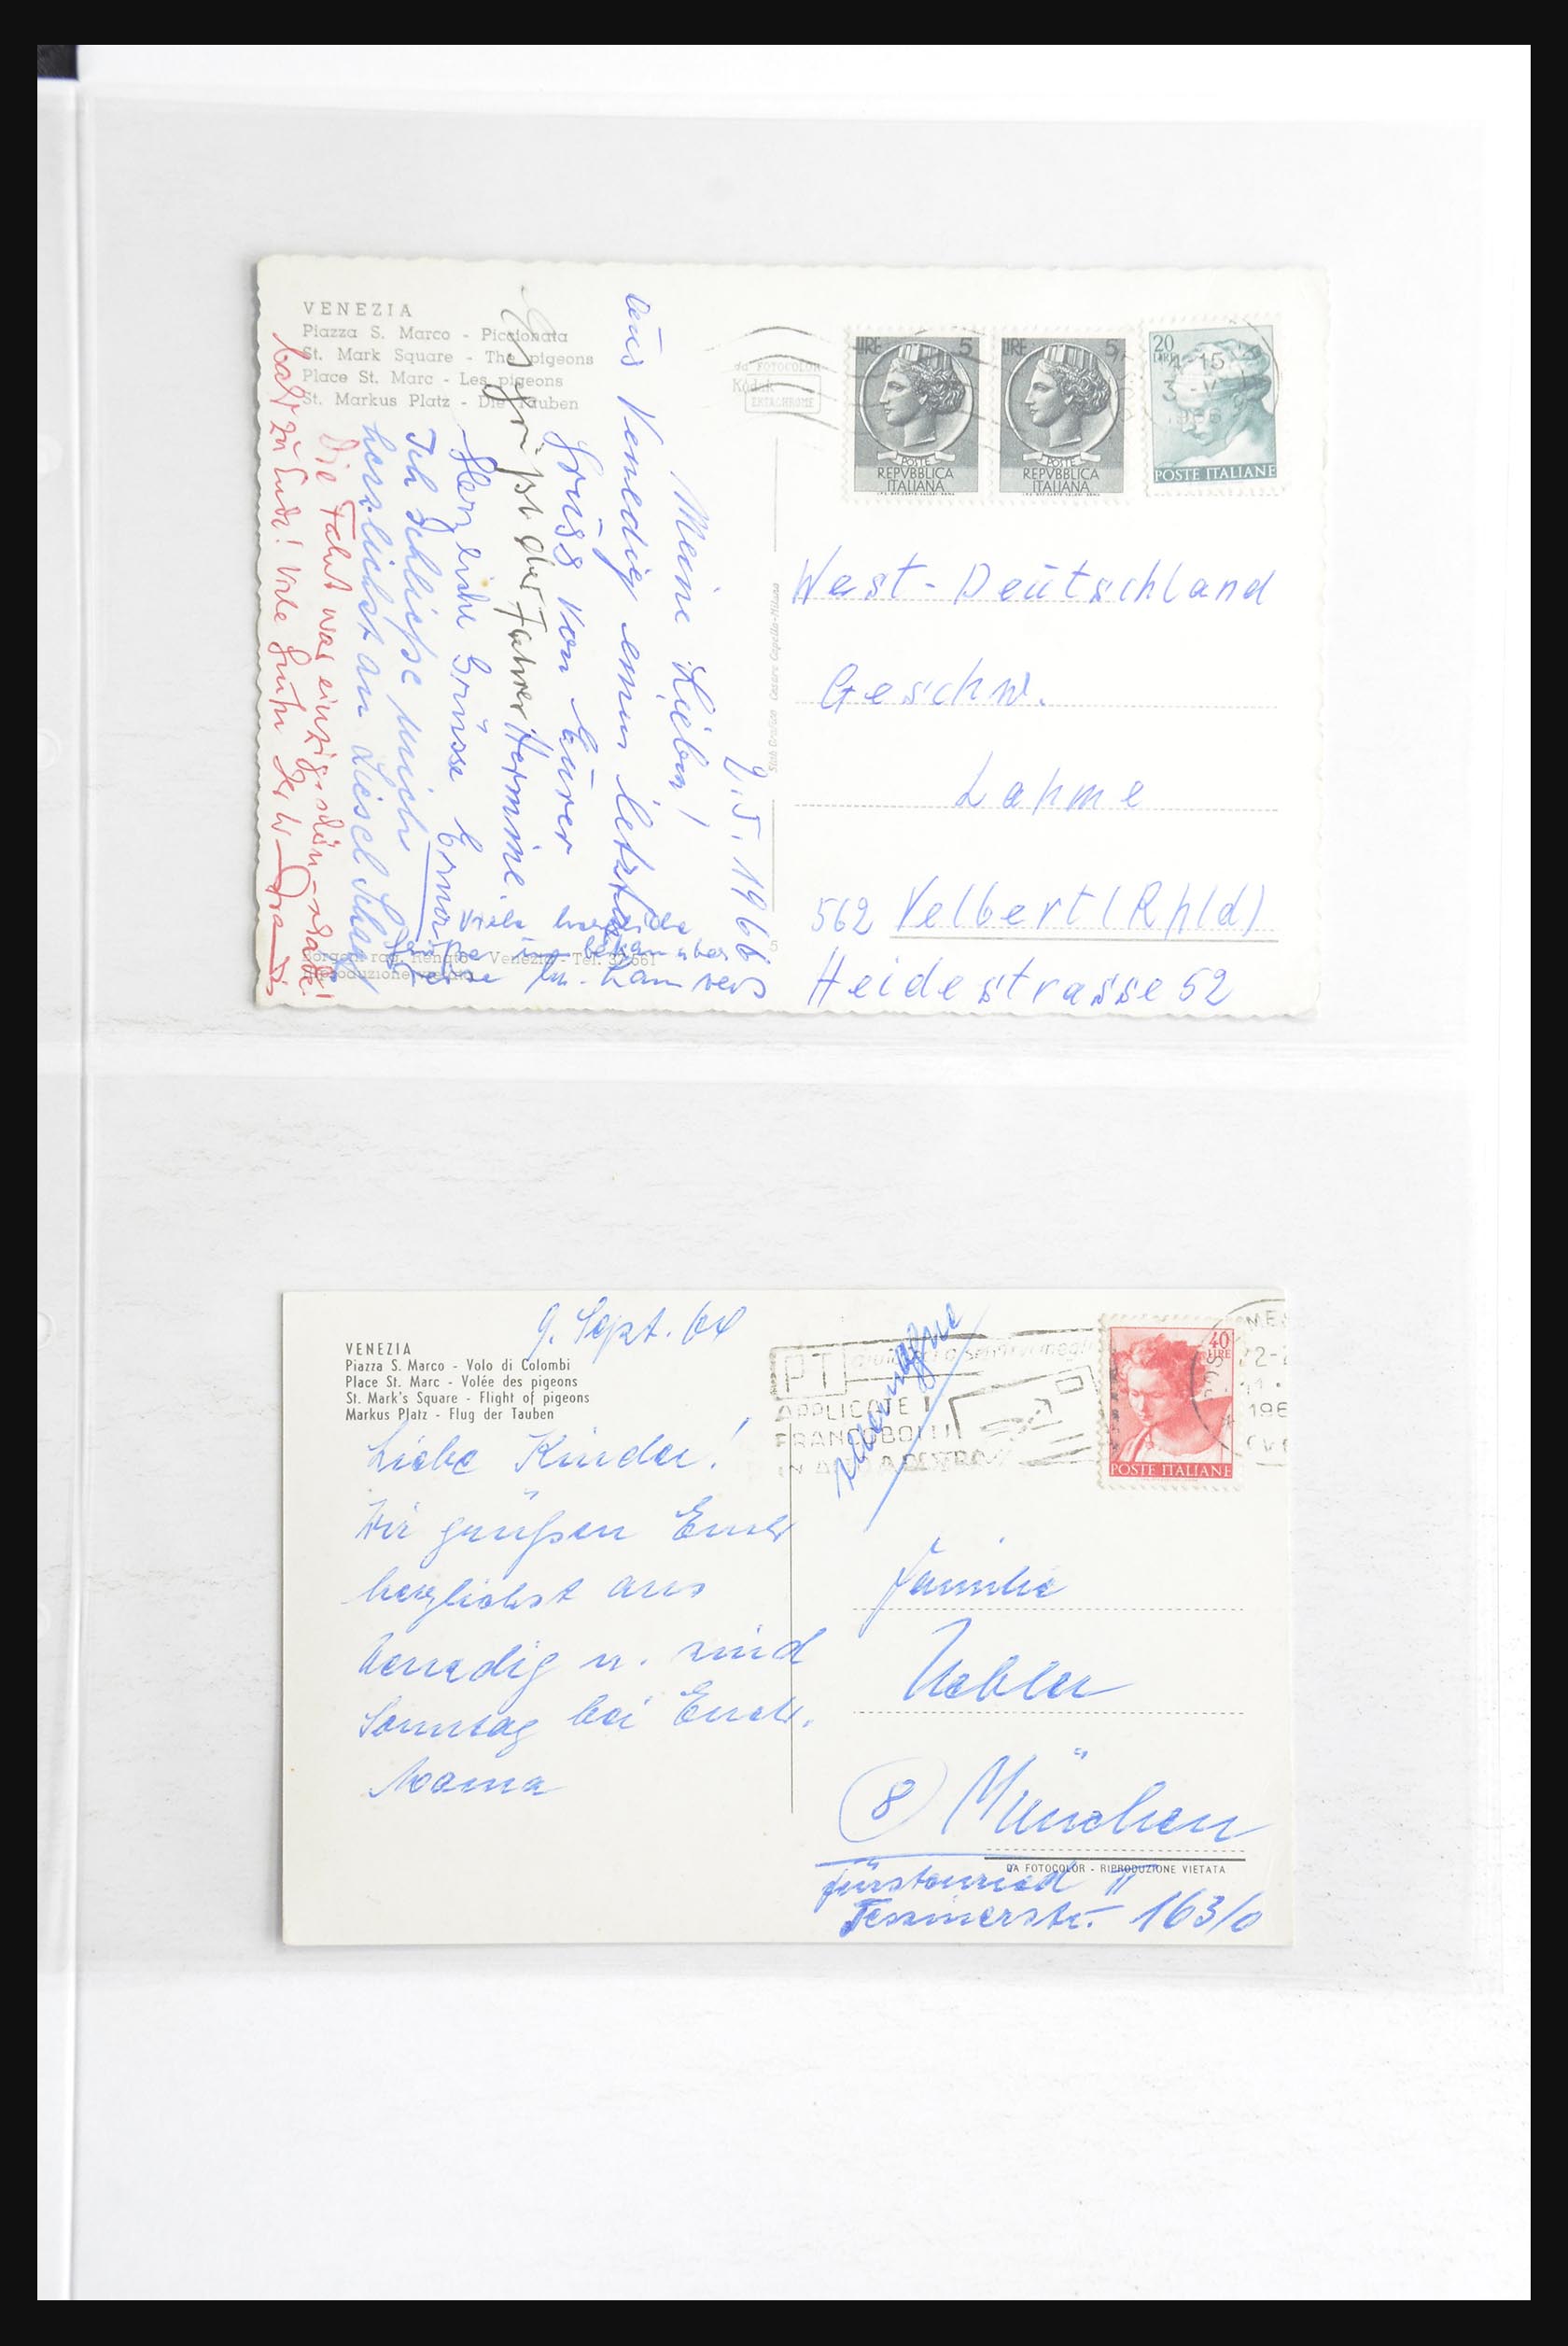 VENEZIA
Piazza S. Marco - Piccionata
St. Mark Square - The pigeons
Place St. Marc - Les pigeons
St. Markus Platz - Die Tauben
da FOTOCOLOR
Kodak
EKTACHROME
LIRE 5
POSTE
REPVBBLICA
ITALIANA
LIRE 5
POSTE
REPVBBLICA
ITALIANA
20
LIRE
POSTE ITALIANE
9.5.1966
Meine Lieben!
Aus Venedig einen letzten
Gruss von Eurer
Hermine.
Es grüßt der Fahrer
Herzliche Grüsse Erna
Ich schließe mich
herzlichst an Liesel
Die Fahrt war einzig schön - schade!
bald zu Ende! Viele Grüße
Viele
Grüße
West-Deutschland
Geschw.
Lahme
562 Velbert (Rhld)
Heidestrasse 52
Venezia - Tel.
riproduzione vietata
5
9. Sept. 64
VENEZIA
Piazza S. Marco - Volo di Colombi
Place St. Marc - Volée des pigeons
St. Mark's Square - Flight of pigeons
Markus Platz - Flug der Tauben
Liebe Kinder!
Wir grüßen Euch
herzlichst aus
Venedig u. sind
Sonntag bei Euch.
Mama
PT
APPLICATE I
FRANCOBOLLI
IN ALTO A DESTRA
40
LIRE
POSTE ITALIANE
Familie
Uebler
8 München
DA FOTOCOLOR - RIPRODUZIONE VIETATA
Fürstenried II
Tessinerstr. 163/0